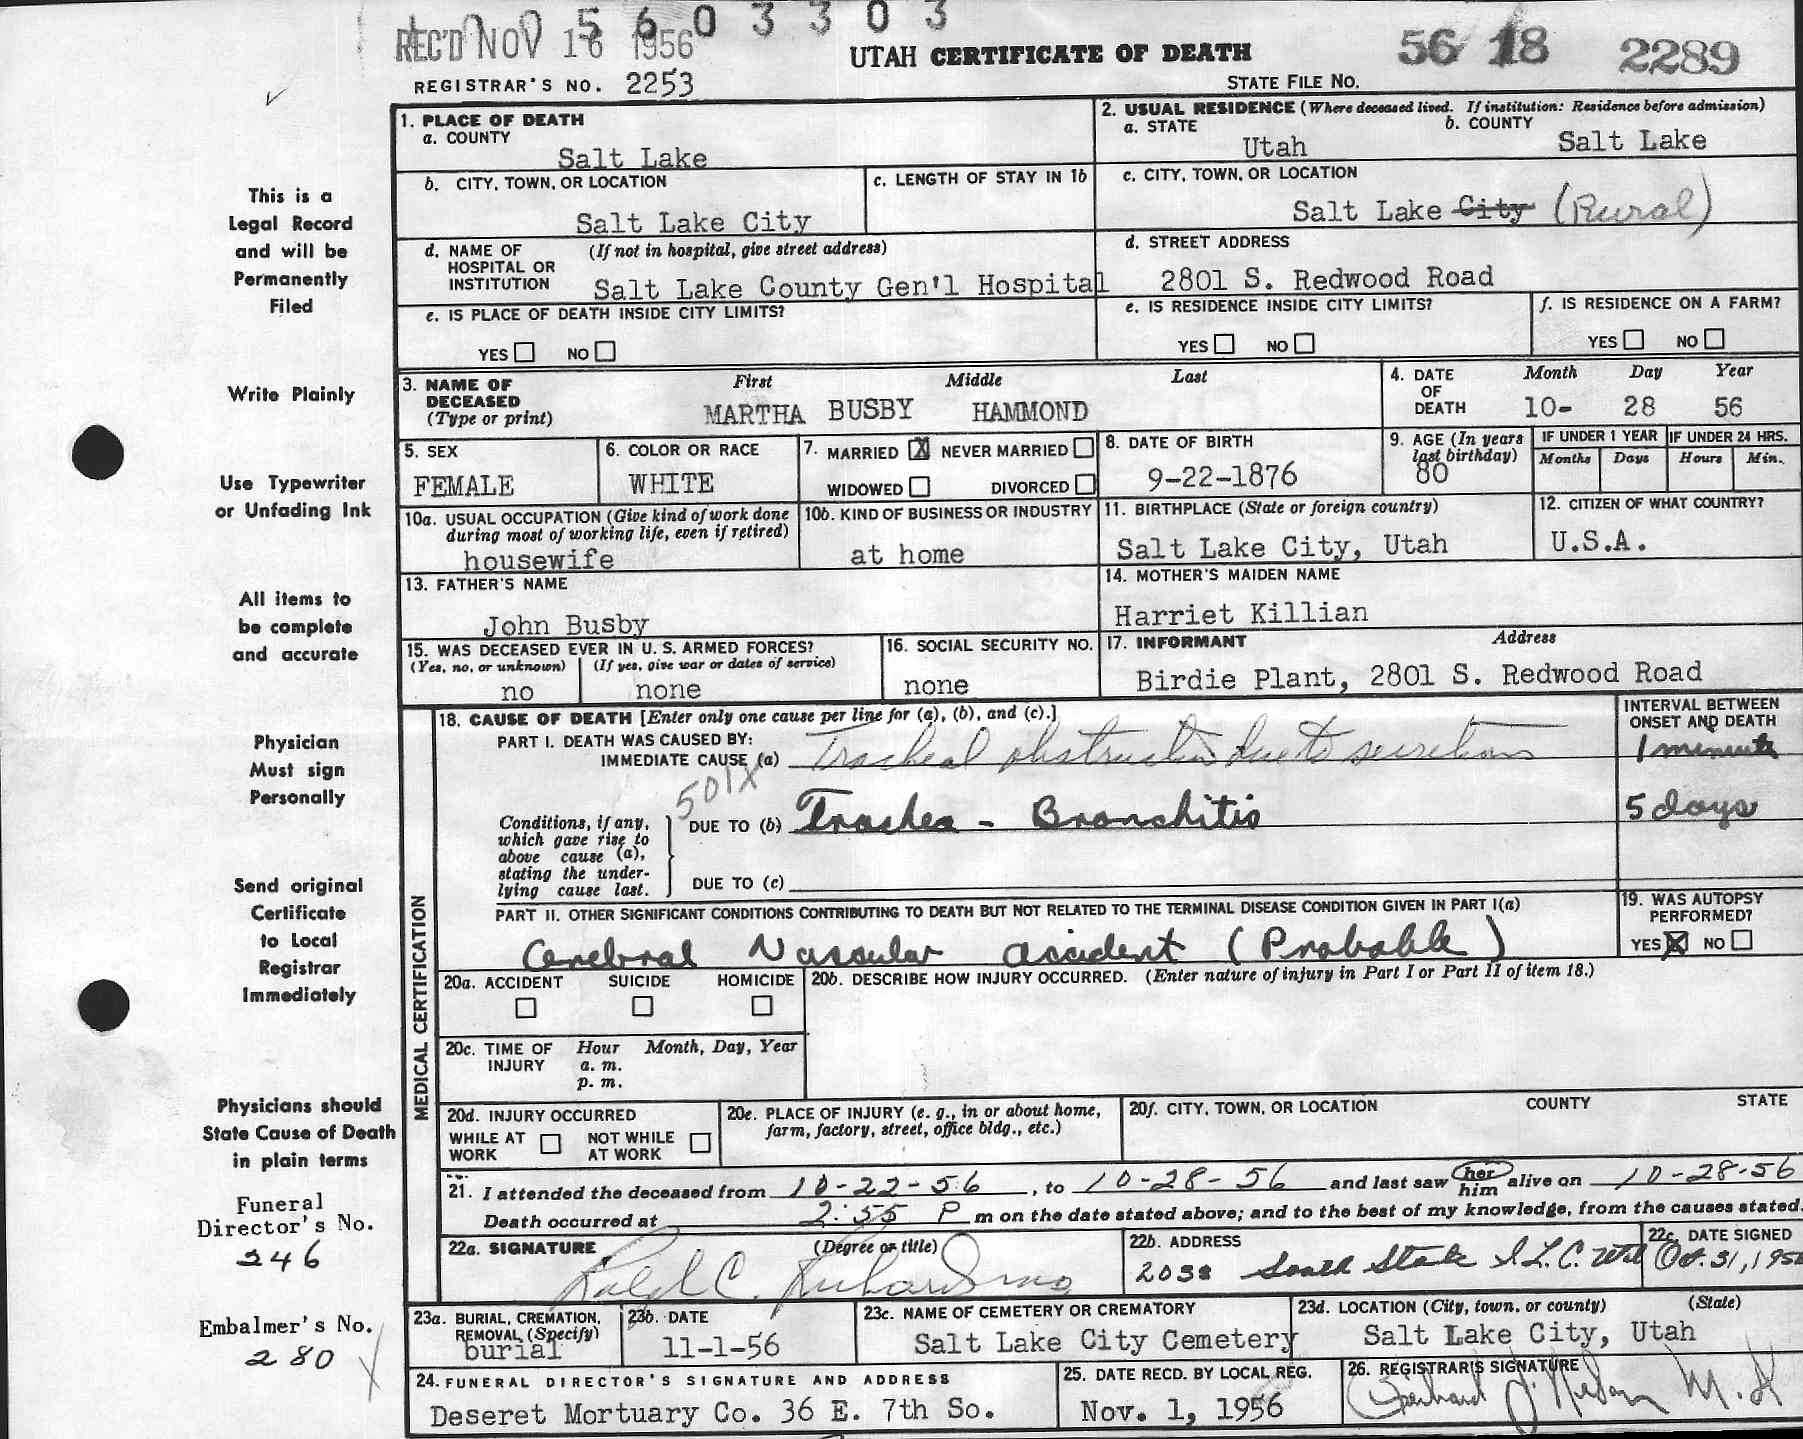 5603303
REC'D NOV 16 1956
UTAH CERTIFICATE OF DEATH
56 18 2289
REGISTRAR'S NO. 2253
STATE FILE NO.
This is a
Legal Record
and will be
Permanently
Filed
Write Plainly
Use Typewriter
or Unfading Ink
All items to
be complete
and accurate
Physician
Must sign
Personally
Send original
Certificate
to Local
Registrar
Immediately
Physicians should
State Cause of Death
in plain terms
Funeral
Director's No.
246
Embalmer's No.
280
1. PLACE OF DEATH
a. COUNTY
Salt Lake
2. USUAL RESIDENCE (Where deceased lived. If institution: Residence before admission)
a. STATE Utah
b. COUNTY Salt Lake
b. CITY, TOWN, OR LOCATION
Salt Lake City
c. LENGTH OF STAY IN 1b
c. CITY, TOWN, OR LOCATION
Salt Lake City (Rural)
d. NAME OF HOSPITAL OR INSTITUTION (If not in hospital, give street address)
Salt Lake County Gen'l Hospital
d. STREET ADDRESS
2801 S. Redwood Road
e. IS PLACE OF DEATH INSIDE CITY LIMITS?
YES NO
e. IS RESIDENCE INSIDE CITY LIMITS?
YES NO
f. IS RESIDENCE ON A FARM?
YES NO
3. NAME OF DECEASED (Type or print)
First Middle Last
MARTHA BUSBY HAMMOND
4. DATE OF DEATH
Month Day Year
10- 28 56
5. SEX
FEMALE
6. COLOR OR RACE
WHITE
7. MARRIED X NEVER MARRIED
WIDOWED DIVORCED
8. DATE OF BIRTH
9-22-1876
9. AGE (In years last birthday)
80
IF UNDER 1 YEAR
Months Days
IF UNDER 24 HRS.
Hours Min.
10a. USUAL OCCUPATION (Give kind of work done during most of working life, even if retired)
housewife
10b. KIND OF BUSINESS OR INDUSTRY
at home
11. BIRTHPLACE (State or foreign country)
Salt Lake City, Utah
12. CITIZEN OF WHAT COUNTRY?
U.S.A.
13. FATHER'S NAME
John Busby
14. MOTHER'S MAIDEN NAME
Harriet Killian
15. WAS DECEASED EVER IN U. S. ARMED FORCES?
(Yes, no, or unknown) (If yes, give war or dates of service)
no none
16. SOCIAL SECURITY NO.
none
17. INFORMANT Address
Birdie Plant, 2801 S. Redwood Road
MEDICAL CERTIFICATION
18. CAUSE OF DEATH [Enter only one cause per line for (a), (b), and (c).]
PART I. DEATH WAS CAUSED BY:
IMMEDIATE CAUSE (a) Tracheal obstruction due to secretions
INTERVAL BETWEEN ONSET AND DEATH
1 minute
501X
Conditions, if any, which gave rise to above cause (a), stating the underlying cause last.
DUE TO (b) Trachea - Bronchitis
5 days
DUE TO (c)
PART II. OTHER SIGNIFICANT CONDITIONS CONTRIBUTING TO DEATH BUT NOT RELATED TO THE TERMINAL DISEASE CONDITION GIVEN IN PART I(a)
Cerebral Vascular accident (Probable)
19. WAS AUTOPSY PERFORMED?
YES X NO
20a. ACCIDENT SUICIDE HOMICIDE
20b. DESCRIBE HOW INJURY OCCURRED. (Enter nature of injury in Part I or Part II of item 18.)
20c. TIME OF INJURY
Hour Month, Day, Year
a. m.
p. m.
20d. INJURY OCCURRED
WHILE AT WORK NOT WHILE AT WORK
20e. PLACE OF INJURY (e. g., in or about home, farm, factory, street, office bldg., etc.)
20f. CITY, TOWN, OR LOCATION COUNTY STATE
21. I attended the deceased from 10-22-56, to 10-28-56 and last saw her him alive on 10-28-56
Death occurred at 2:55 P m on the date stated above; and to the best of my knowledge, from the causes stated.
22a. SIGNATURE (Degree or title)
Ralph C. Richards MD
22b. ADDRESS
2038 South State S.L.C. Utah
22c. DATE SIGNED
Oct. 31, 195
23a. BURIAL, CREMATION, REMOVAL (Specify)
burial
23b. DATE
11-1-56
23c. NAME OF CEMETERY OR CREMATORY
Salt Lake City Cemetery
23d. LOCATION (City, town, or county) (State)
Salt Lake City, Utah
24. FUNERAL DIRECTOR'S SIGNATURE AND ADDRESS
Deseret Mortuary Co. 36 E. 7th So.
25. DATE RECD. BY LOCAL REG.
Nov. 1, 1956
26. REGISTRAR'S SIGNATURE